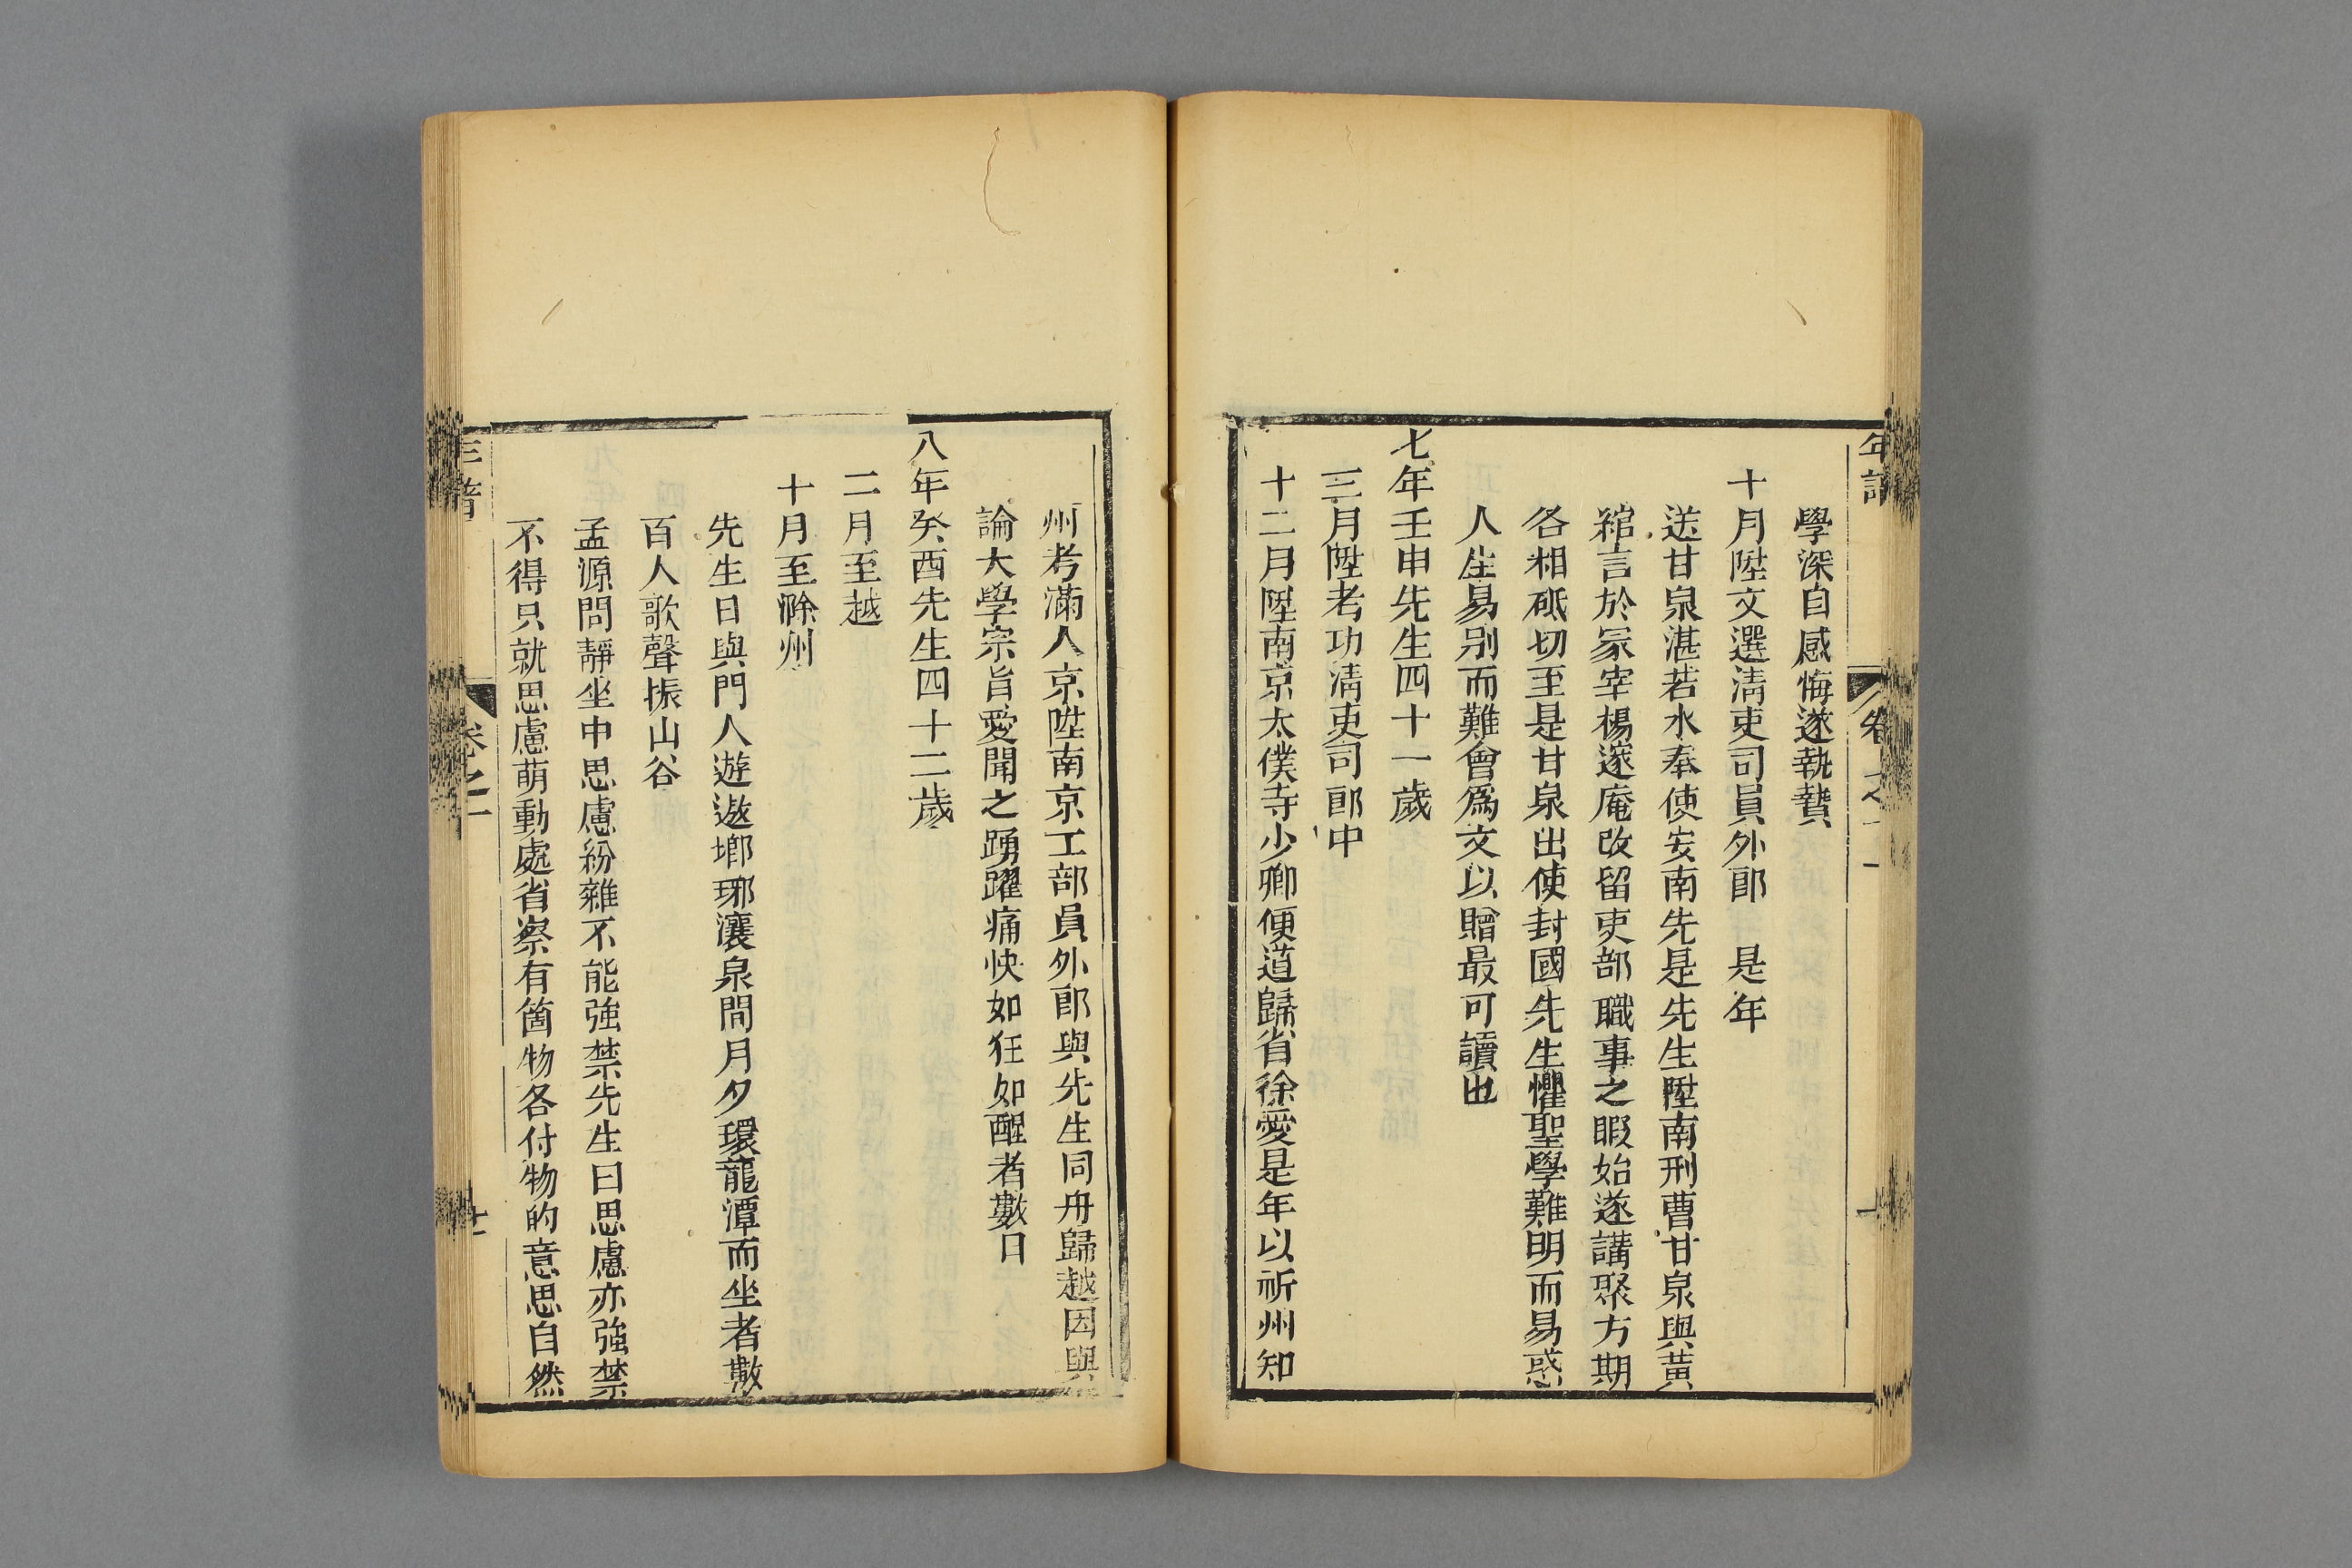 年譜
卷之一
學深自感悔遂執贄
十月陞文選淸吏司員外郎 是年
送甘泉湛若水奉使安南先是先生陞南刑曹甘泉與黃
綰言於冢宰楊邃庵改留吏部職事之暇始遂講聚方期
各相砥切至是甘泉出使封國先生懼聖學難明而易惑
人生易別而難會爲文以贈最可讀也
七年壬申先生四十一歲
三月陞考功淸吏司郎中
十二月陞南京太僕寺少卿便道歸省徐愛是年以祈州知
州考滿入京陞南京工部員外郎與先生同舟歸越因與
論大學宗旨愛聞之踴躍痛快如狂如醒者數日
八年癸酉先生四十二歲
二月至越
十月至滁州
先生日與門人遊遨瑯琊瀼泉間月夕環龍潭而坐者數
百人歌聲振山谷
孟源問靜坐中思慮紛雜不能強禁先生曰思慮亦強禁
不得只就思慮萌動處省察有箇物各付物的意思自然
年譜
卷之一